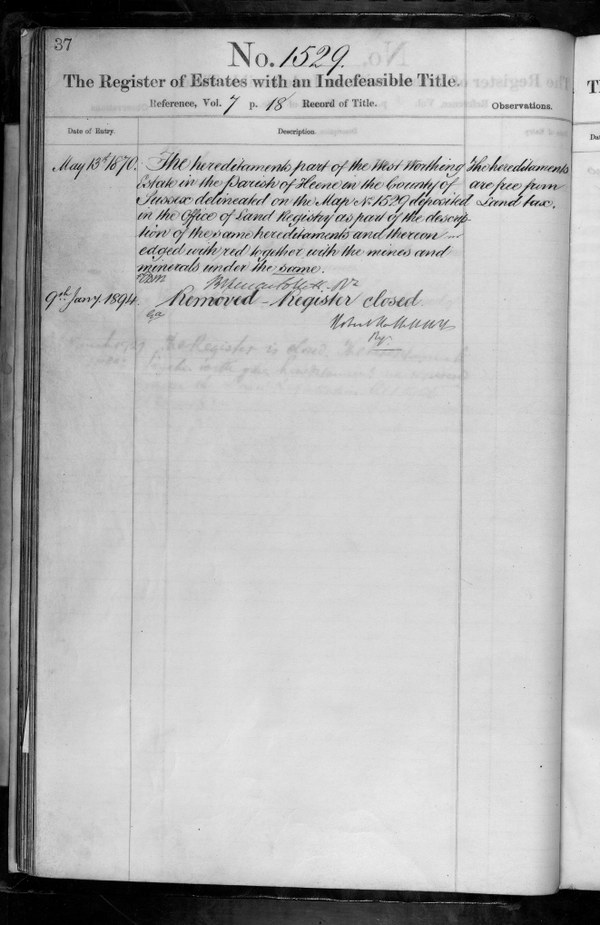 37
No. 1529.
The Register of Estates with an Indefeasible Title.
Reference, Vol. 7 p. 18 Record of Title.
Observations.
Date of Entry.
Description.
May 13th 1870.
The hereditaments part of the West Worthing
Estate in the Parish of Heene in the County of
Sussex delineated on the Map No. 1529 deposited
in the Office of Land Registry as part of the descrip-
tion of the same hereditaments and thereon
edged with red together with the mines and
minerals under the same.
The hereditaments
are free from
Land tax.
9th Jany. 1894.
Removed - Register closed
Rgr.